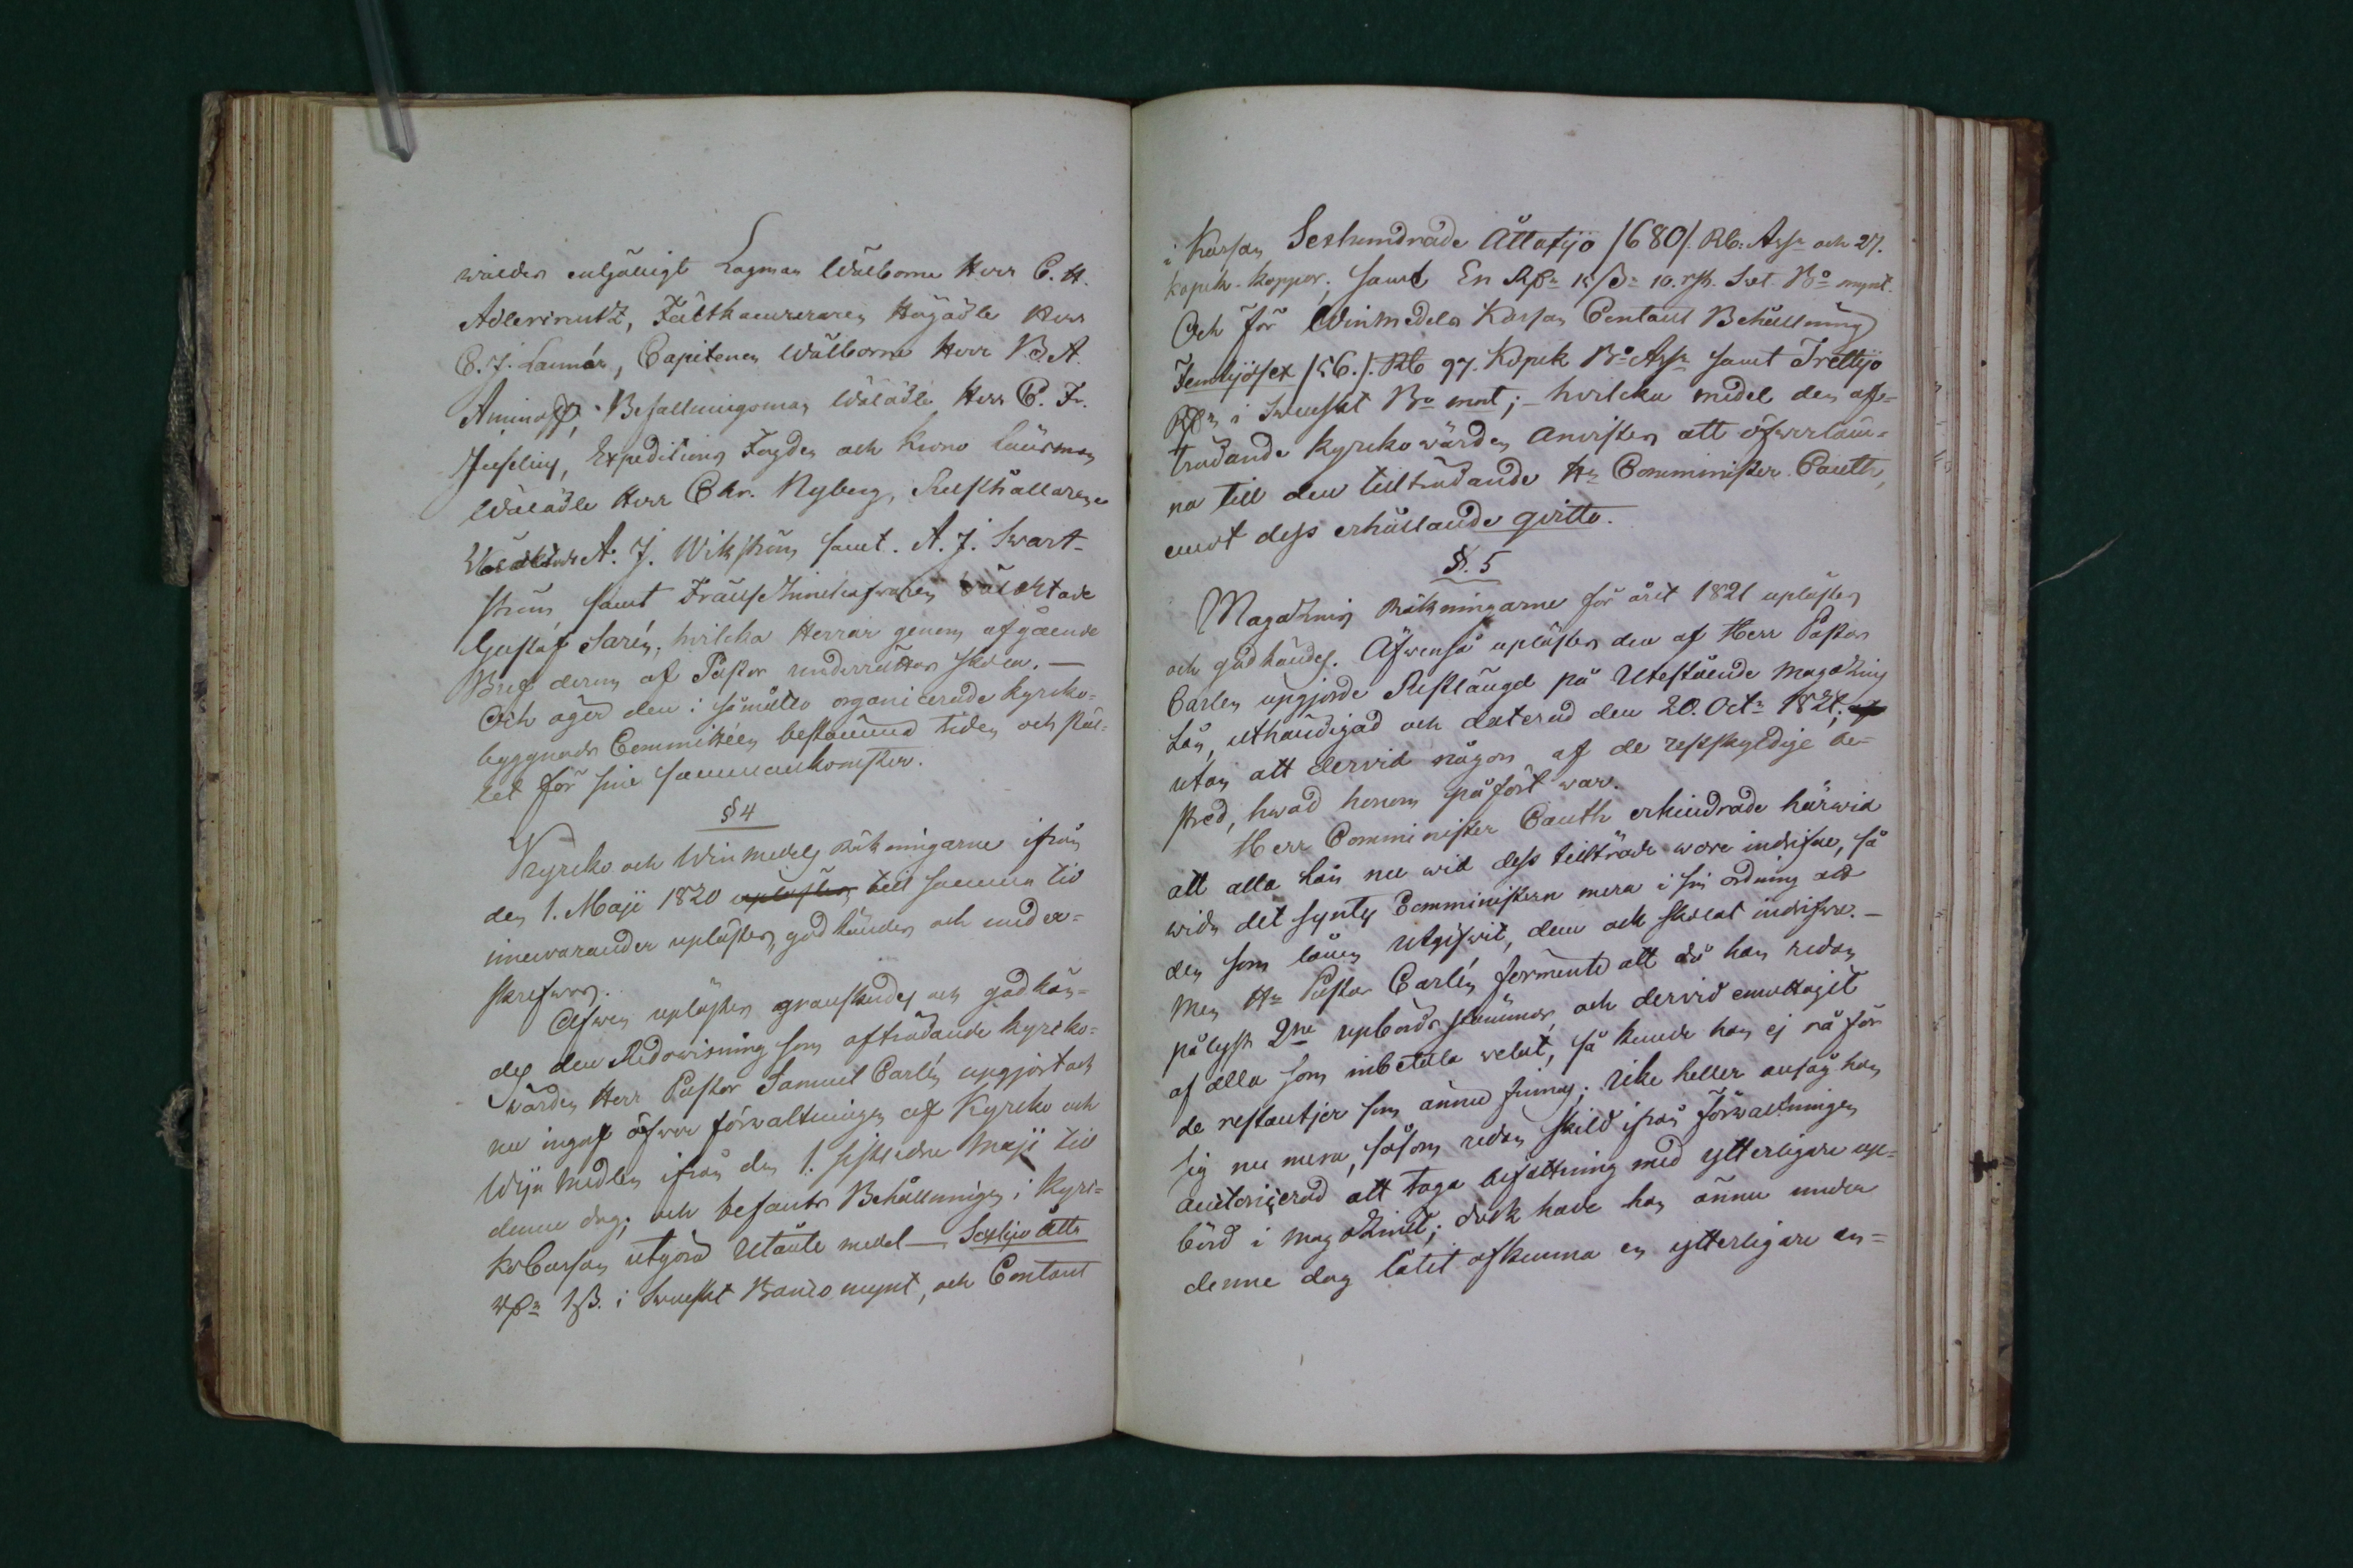 waldes enhälligt Lagman Wälborne Herr C. H.
Adlercreutz, Fältkamreraren Högädle Herr
C. J. Lannér, Capitenen Wälborne Herr B. A.
Aminoff, Befallningsman Wälädle Herr C. Fr.
Juselius, Expeditions Fogden och Krono Länsman
Wälädle Herr Chr. Nyberg, Rusthållarene
A. J. Wikström samt A. J. Swart-
ström samt Wälaktade
Gustaf Sarén, hvilcka Herrar genom afgående
Bref derom af Pastor underrättas skola. —
Och äger den i så måtto organicerade kyrcko-
byggnads Committéen bestämma tiden och stäl-
let för sine sammankomster.
§ 4
Kyrcko och Winmedels Räkningarne ifrån
den 1. Maji 1820 till samma tid
innewarander uplästes, godkändes och under-
skrefwos.
Äfwen uplästes granskades och godkän-
des den Redowisning som afträdande kyrcko-
wärden Herr Pastor Samuel Carlén upgjort och
nu ingaf öfwer förwaltningen af Kyrcko och
Wijn Medlen ifrån den 1. sistledne Maji till
denne dag; och befants Behållningen i Kyrc-
ko Cassan utgöra Utånte medel — Sextijo åtta
Rdr 1 ß. i Swenskt Banco mynt, och Contant
i Kassan Sexhundrade Åttatijo /680/. Rb: Assr och 27.
kopek koppar, samt En Rdr 15 ß 10. rst. Svt. Bo mynt.
Och för Winmedels Kassan Contant Behållning
Femtijosex /56./. Rb 97. Kopek Bo Assr samt Trettijo
Rdr i Swenskt Bo mnt; hvilcka medel den af-
trädande kyrckowärden anwistes att öfwerläm-
na till den tillträdande Hr Comminister Cauth,
emot dess erhållande qvitto.
§. 5
Magazins Räkningarne för året 1821 uplästes
och godkändes. Äfwenså uplästes den af Herr Pastor
Carlén upgjorde Restlängd på Utestående Magazins
Lån, uthändigad och daterad den 20. Octr 1821,
utan att dervid någon af de restskyldige be-
stred, hwad honom påfört war.
Herr Comminister Cauth erhindrade härwid
att alla lån nu wid dess tillträde wore indrifne, så
wida det syntes Comministern mera i sin ordning att
den som lånen utgifwit, dem ock skolat indrifwa. —
Men Hr Pastor Carlén förmente att då han redan
pålyst 2ne upbörds stämmor, och dervid emottagit
af alla som inbetala welat, så kunde han ej rå för
de restantjer som ännu finnas; icke heller ansåg han
sig nu mera, såsom redan skild ifrån förwaltningen
auctoriserad att taga befattning med ytterligare up-
börd i Magazinet; dock hade han ännu under
denne dag låtit afkunna en ytterligare en-